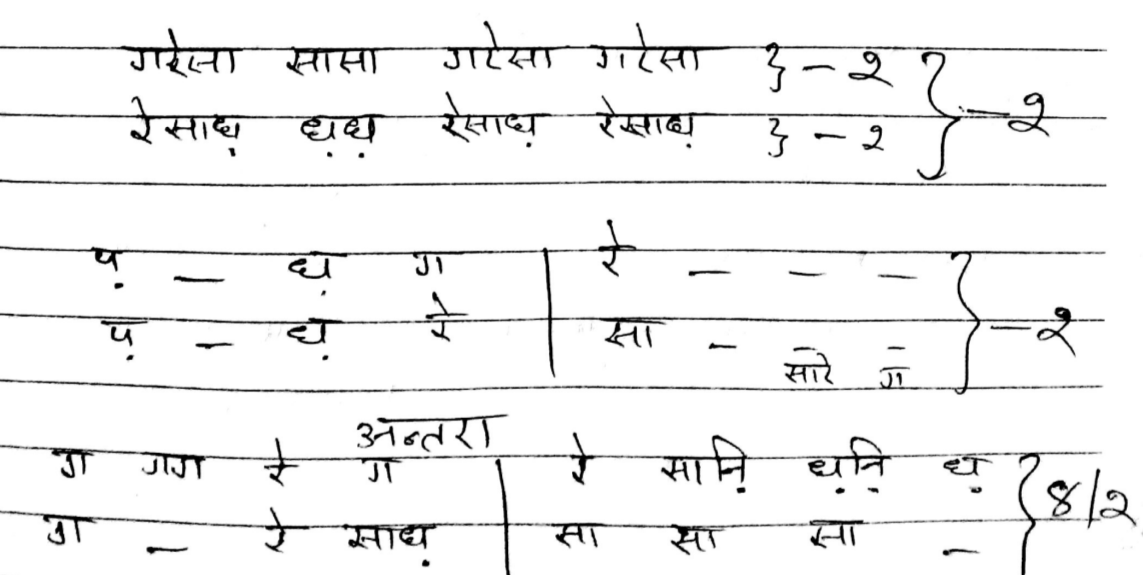 गरेसा सासा गरेसा गरेसा } – २ } – २
रेसाध़ ध़ध़ रेसाध़ रेसाध़ } – २
प़ – ध़ ग | रे – – – } – २
प़ – ध़ रे | सा – – –
सारे ग
अन्तरा
ग गग रे ग | रे सानि़ ध़नि़ ध़ } ४/२
ग – रे साध़ | सा सा सा –